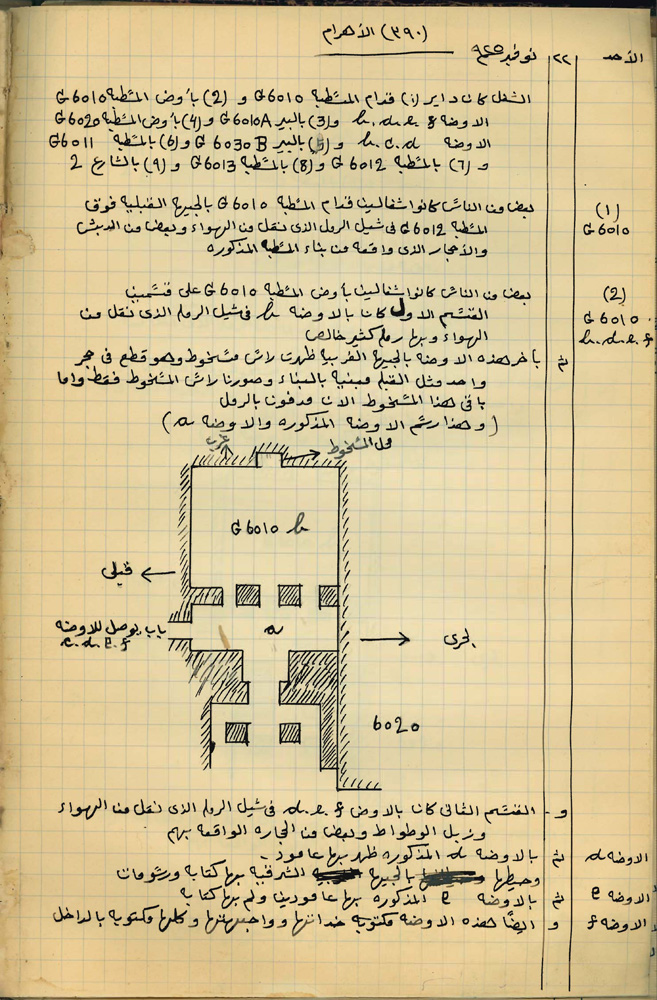 (٣٩٠) الأهرام
الأحد ٢٢ نوفمبر ٩٢٥
الشغل كان داير (١) قدام المصطبة G 6010 و (2) بأوض المصطبة G 6010
الاوضه b. d. e. f و (3) بالبير G 6010A و (4) بأوض المصطبة G 6020
الاوضه b. c. d و (5) بالبير G 6030 B و (6) بالمصطبة G 6011
و (7) بالمصطبة G 6012 و (8) بالمصطبة G 6013 و (9) بالشارع 2
(1)
G 6010
بعض من الناس كانوا شغالين قدام المصطبة G 6010 بالجيهة القبلية فوق
المصطبة G 6012 فى شيل الرمل الذى نقل من الهواء وبعض من الدبش
والأحجار الذى واقعه من بناء المصطبة المذكوره
(2)
G 6010
b. d. e. f
بعض من الناس كانوا شغالين بأوض المصطبة G 6010 على قسمين
القسم الاول كان بالاوضه b فى شيل الرمل الذى نقل من
الهواء وبها رمل كثير خالص
ثم بأخر هذه الاوضه بالجيهة الغربية ظهرت راس مسخوط وهو قطع فى حجر
واحد مثل القبلة مبنية بالبناء وصورنا راس المسخوط فقط واما
باقى هذا المسخوط الان مدفون بالرمل
(وهذا رسم الاوضه المذكوره والاوضه a)
محل المسخوط
غرب
G 6010 b
قبلى
باب يوصل للاوضه
c. d. e. f
a
بحرى
6020
و - القسم الثانى كان بالاوض d. e. f فى شيل الرمل الذى نقل من الهواء
وزبل الوطواط وبعض من الحجاره الواقعه بهم
الاوضه d ثم بالاوضه d المذكوره ظهر بها عامود -
وحيطها بالجيهة الشرقية بها كتابه ورسومات
الاوضه e ثم بالاوضه e المذكوره بها عامودين ولم بها كتابه
الاوضه f و ايضًا هذه الاوضه مكتوبه وواجهتها وكلها مكتوبه بالداخل